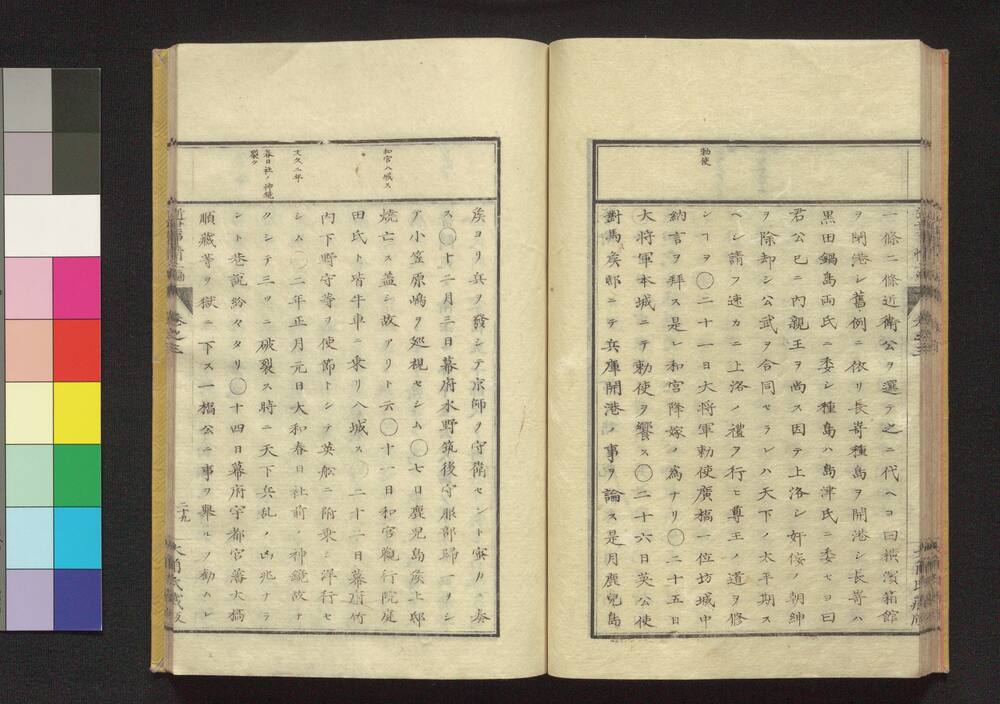 一條二條近衛公ヲ選テ之ニ代ヘヨ曰橫濱箱館
ヲ開港シ舊例ニ依リ長嵜種島ヲ開港シ長嵜ハ
黑田鍋島両氏ニ委シ種島ハ島津氏ニ委セヨ曰
君公已ニ內親王ヲ尚ス因テ上洛シ奸侫ノ朝紳
ヲ除却シ公武ヲ合同セラレハ天下ノ太平期ス
ヘシ請フ速カニ上洛ノ禮ヲ行ヒ尊王ノ道ヲ修
勅使
シヿヲ〇二十一日大将軍勅使廣橋一位坊城中
納言ヲ拜ス是レ和宮降嫁ノ為ナリ〇二十五日
大将軍本城ニテ勅使ヲ饗ス〇二十六日英公使
對馬矦邸ニテ兵庫開港ノ事ヲ論ス是月鹿兒島
矦ヨリ兵ヲ發シテ京師ノ守衛セント寅カニ奏
ス〇十二月三日幕府水野筑後守服部歸一ヲシ
テ小笠原嶋ヲ廵視セシム〇七日鹿児島矦上邸
和宮入城ス
燒亡ス蓋シ故アリト六〇十一日和宮觀行院庭
田氏ト皆牛車ニ乘リ入城ス〇二十二日幕府竹
內下野守等ヲ使節トシテ英舩ニ附乘シ洋行セ
文久二年
シム〇二年正月元日大和春日社前ノ神鏡故ナ
春日社ノ神鏡
裂ク
クシテ三ツニ破裂ス時ニ天下兵乱ノ凶兆ナラ
ント巷說紛々タリ〇十四日幕府宇都宮藩大橋
順藏等ヲ獄ニ下ス一橋公ニ事ヲ舉ルノ勸ハレ
卷之三
二十九